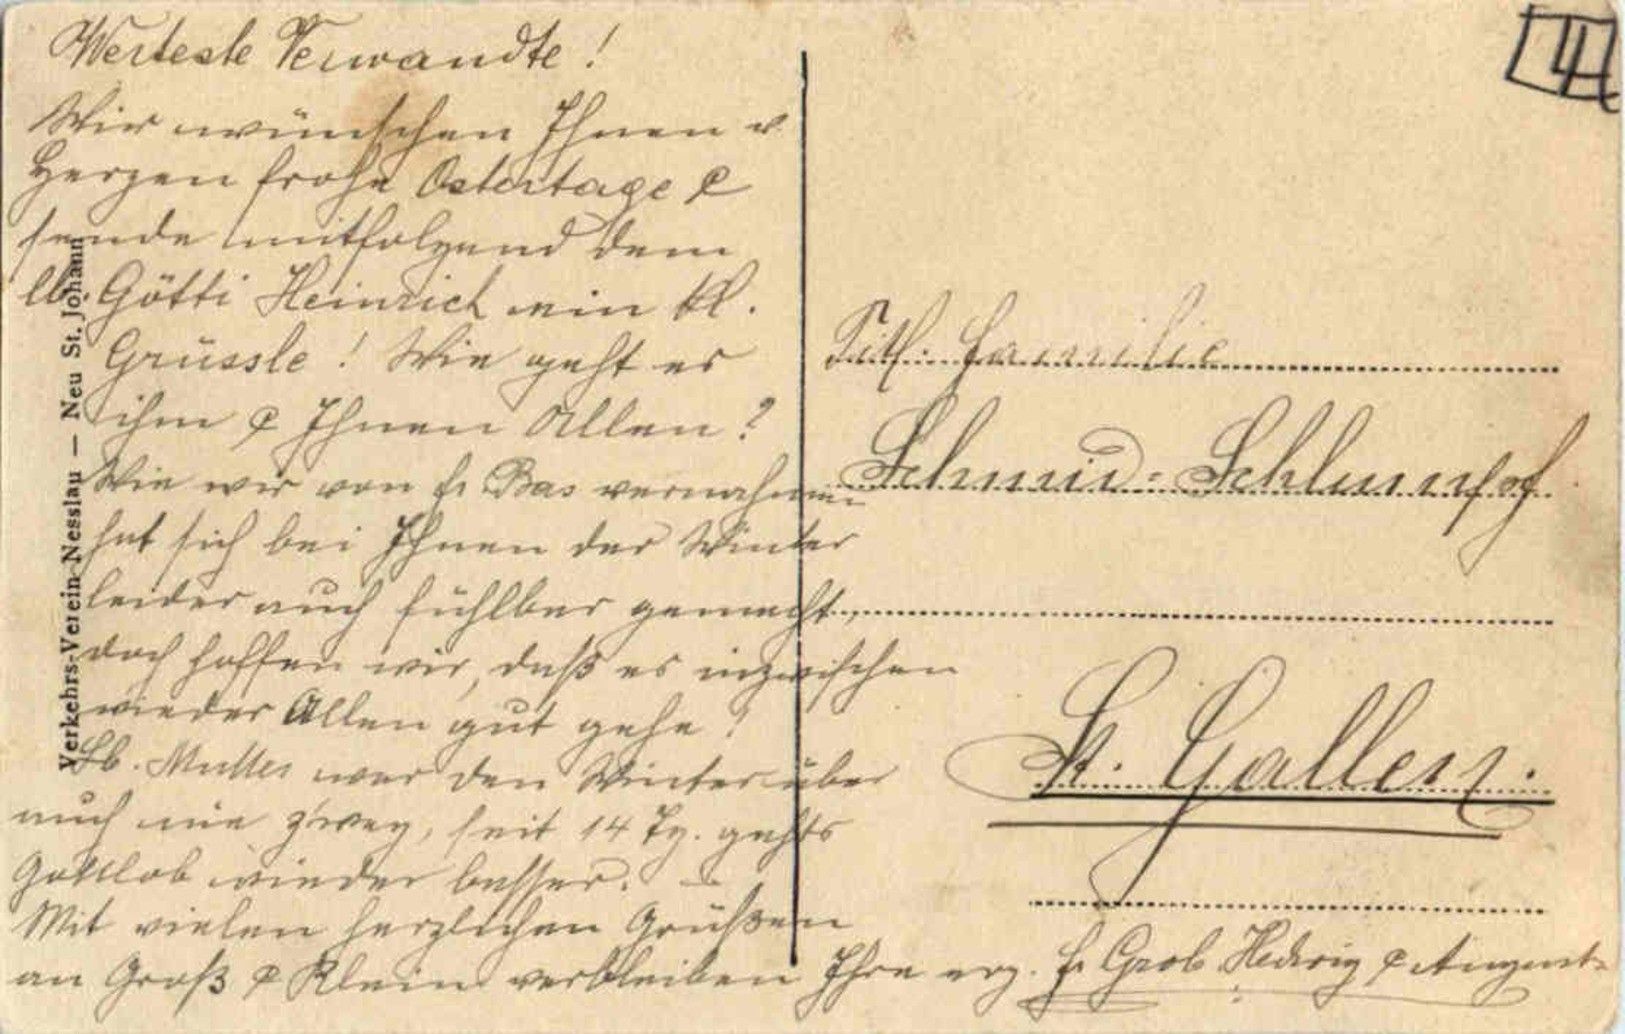 Werteste Verwandte!
Wir wünschen Ihnen v.
Herzen frohe Ostertage &
sende mitfolgend dem
lb. Götti Heinrich ein kl.
Grüssle! Wie geht es
ihm & Ihnen Allen?
Wie wir von Fr. Bas vernahmen
hat sich bei Ihnen der Winter
leider auch fühlbar gemacht,
doch hoffen wir, daß es inzwischen
wieder Allen gut gehe!
Lb. Mutter war den Winter über
auch nie zweg, seit 14 Tg. gehts
Gottlob wieder besser. –
Mit vielen herzlichen Grüßen
an Groß & Klein verbleiben Ihre erg. Fr. Grob Hedwig & August
Titl. Familie
Schmid-Schlumpf
St. Gallen.
Verkehrs-Verein Nesslau — Neu St. Johann